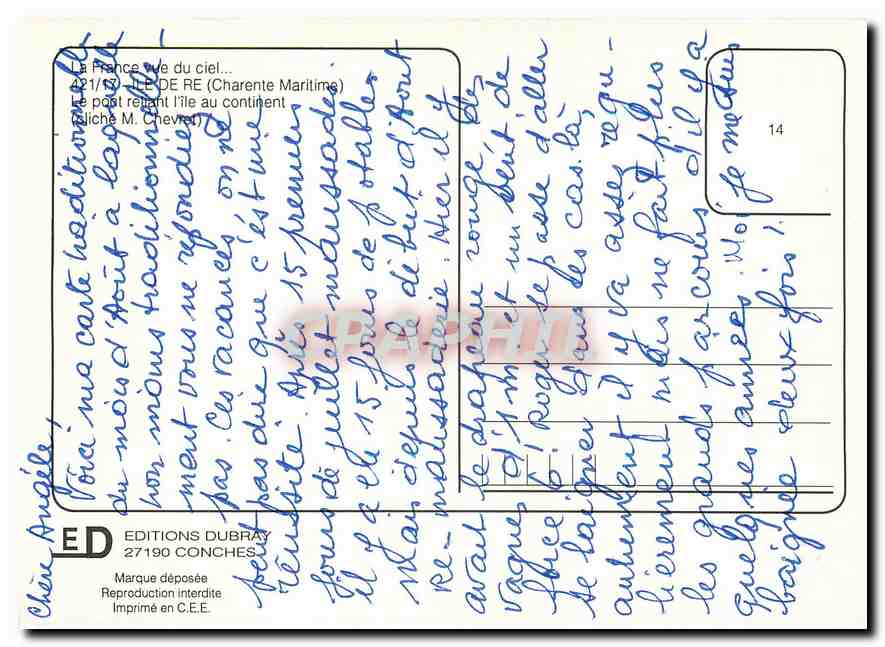 La France vue du ciel...
421/17 - ILE DE RE (Charente Maritime)
Le pont reliant l'île au continent
(cliché M. Chevret)
14
ED
EDITIONS DUBRAY
27190 CONCHES
Marque déposée
Reproduction interdite
Imprimé en C.E.E.
CPAPHIL
Chère Angèle!
Voici ma carte traditionnelle
du mois d'Août à laquelle
non moins traditionnelle-
ment vous ne répondiez
pas. Ces vacances, on ne
peut pas dire que c'est une
réussite. Après 15 premiers
jours de juillet maussades
il y a eu 15 jours de potables
Mais depuis le début d'Août
Re-maussaderie. Hier il y
avait le drapeau rouge, des
vagues d'1 m et un vent de
force 6! Roger se passe d'aller
se baigner dans des cas-là,
autrement il y va assez régu-
lièrement mais ne fait plus
les grands parcours d'il y a
quelques années. Moi je me suis
baignée deux fois!